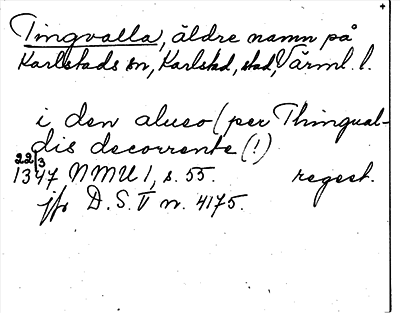 Tingvalla, äldre namn på
Karlstads sn, Karlstad, stad, Värml. l.
i den alueo (per Thingual-
dis decorrente (!)
22/3
1347 NMU 1, s. 55. regest.
jfr D.S. V nr. 4175.